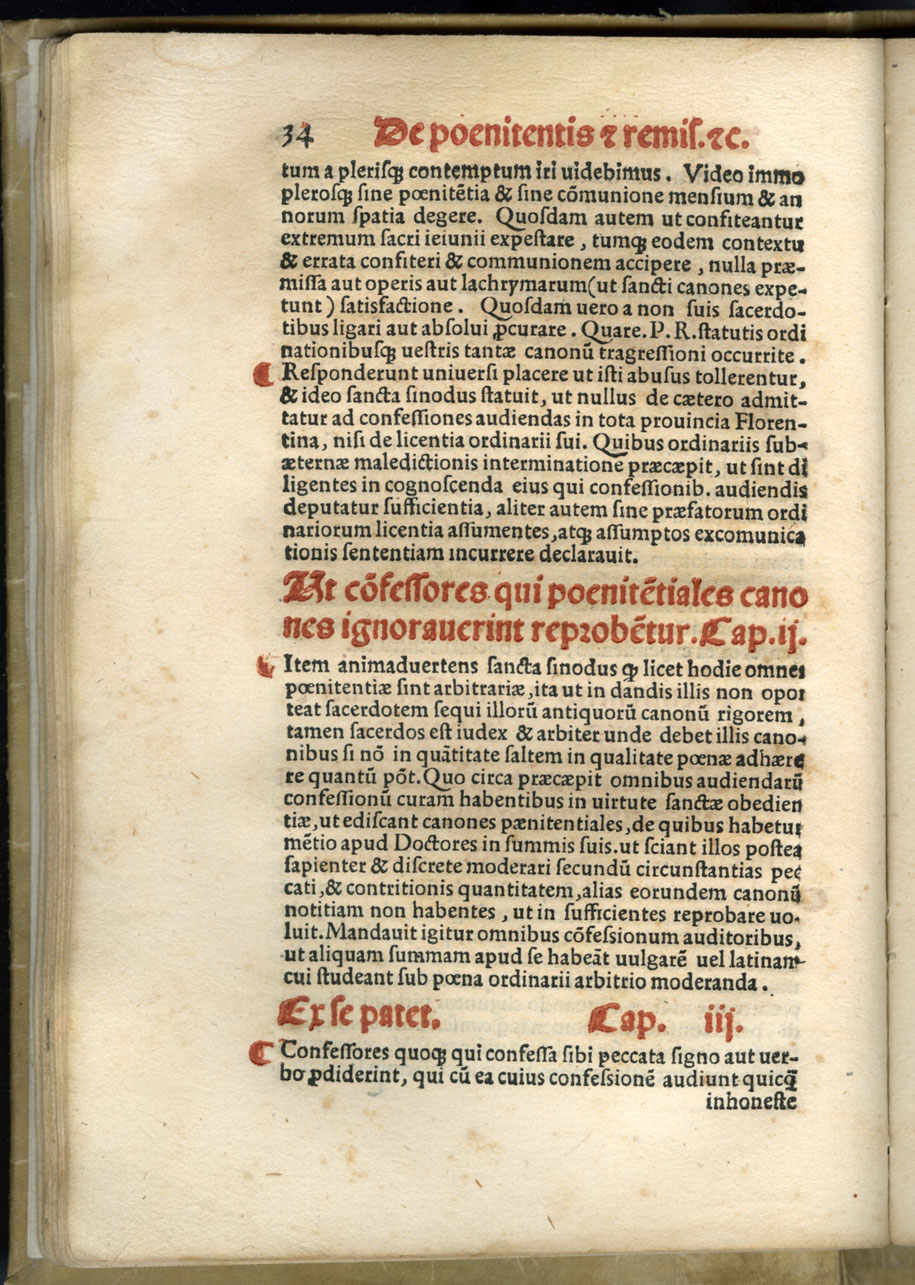 34 De poenitentis ⁊ remiſ. ⁊c.
tum a pleriſqꝫ contemptum iri uidebimus. Video immo
pleroſqꝫ ſine pœnitẽtia & ſine cõmunione menſium & an
norum ſpatia degere. Quoſdam autem ut confiteantur
extremum ſacri ieiunii expeſtare, tumqꝫ eodem contextu
& errata confiteri & communionem accipere, nulla præ-
miſſa aut operis aut lachrymarum(ut ſancti canones expe-
tunt) ſatisfactione. Quoſdam uero a non ſuis ſacerdo-
tibus ligari aut abſolui ꝓcurare. Quare. P. R. ſtatutis ordi
nationibuſqꝫ ueſtris tantæ canonũ trãgreſſioni occurrite.
⸿ Reſponderunt uniuerſi placere ut iſti abuſus tollerentur,
& ideo ſancta ſinodus ſtatuit, ut nullus de cætero admit-
tatur ad confeſſiones audiendas in tota prouincia Floren-
tina, niſi de licentia ordinarii ſui. Quibus ordinariis ſub-
æternæ maledictionis interminatione præcæpit, ut ſint di
ligentes in cognoſcenda eius qui confeſſionib. audiendis
deputatur ſufficientia, aliter autem ſine præfatorum ordi
nariorum licentia aſſumentes, atqꝫ aſſumptos excomunica
tionis ſententiam incurrere declarauit.
Ut cõfeſſores qui poenitẽtiales cano
nes ignorauerint reprobẽtur. Cap. ij.
⸿ Item animaduertens ſancta ſinodus ꝙ licet hodie omnes
pœnitentiæ ſint arbitrariæ, ita ut in dandis illis non opor
teat ſacerdotem ſequi illorũ antiquorũ canonũ rigorem,
tamen ſacerdos eſt iudex & arbiter unde debet illis cano-
nibus ſi nõ in quãtitate ſaltem in qualitate pœnæ adhære
re quantũ põt. Quo circa præcæpit omnibus audiendarũ
confeſſionũ curam habentibus in uirtute ſanctæ obedien
tiæ, ut ediſcant canones pænitentiales, de quibus habetur
mẽtio apud Doctores in ſummis ſuis. ut ſciant illos poſtea
ſapienter & diſcrete moderari ſecundũ circunſtantias pec
cati, & contritionis quantitatem, alias eorundem canonũ
notitiam non habentes, ut in ſufficientes reprobare uo-
luit. Mandauit igitur omnibus cõfeſſionum auditoribus,
ut aliquam ſummam apud ſe habeãt uulgarẽ uel latinam
cui ſtudeant ſub pœna ordinarii arbitrio moderanda.
Ex ſe patet. Cap. iij.
⸿ Confeſſores quoqꝫ qui confeſſa ſibi peccata ſigno aut uer-
bo ꝓdiderint, qui cũ ea cuius confeſſionẽ audiunt quicqꝫ̃
inhoneſte